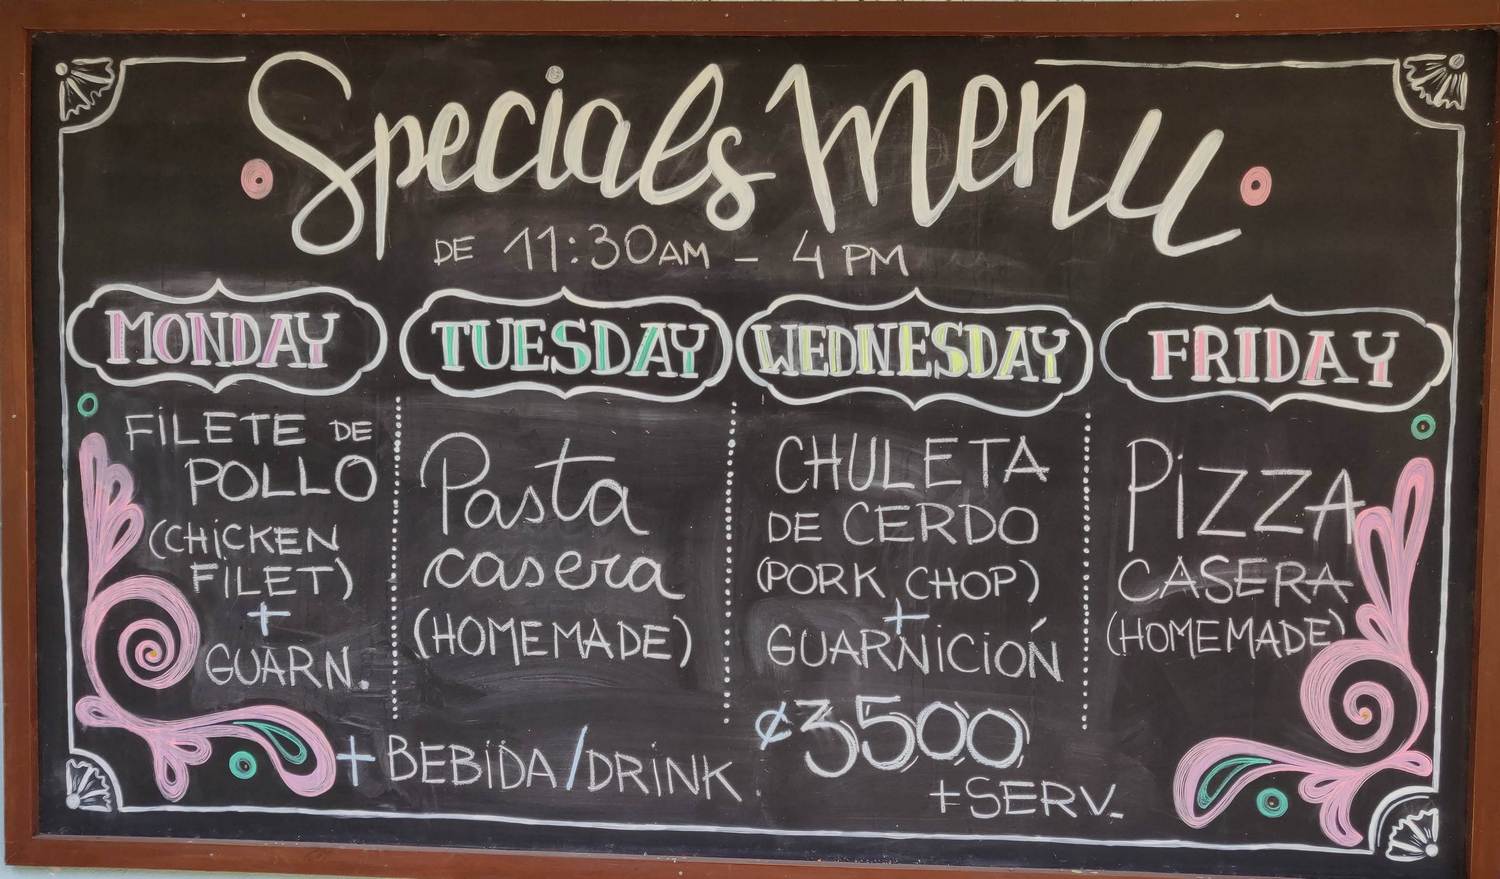 Specials Menu
DE 11:30AM - 4 PM
MONDAY
FILETE DE
POLLO
(CHICKEN
FILET)
+
GUARN.
TUESDAY
Pasta
casera
(HOMEMADE)
WEDNESDAY
CHULETA
DE CERDO
(PORK CHOP)
+
GUARNICIÓN
FRIDAY
PIZZA
CASERA
(HOMEMADE)
+ BEBIDA/DRINK.
₡3500
+SERV.